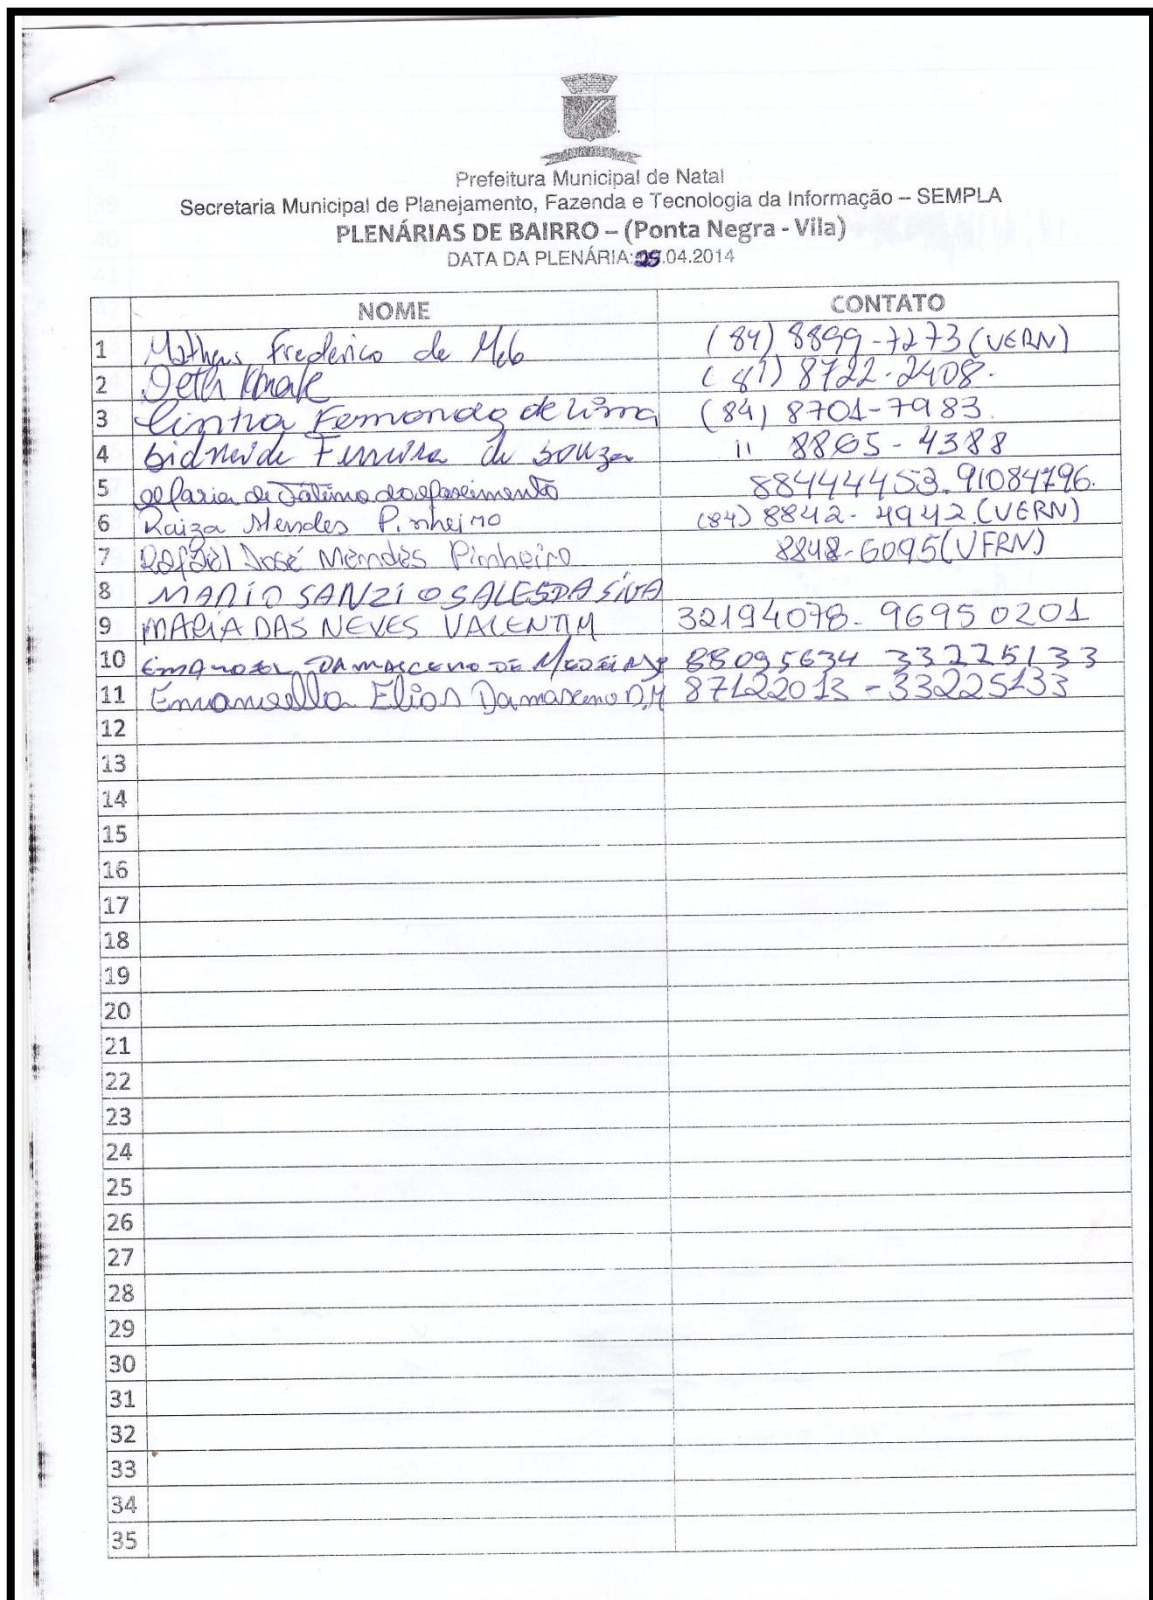 Prefeitura Municipal de Natal
Secretaria Municipal de Planejamento, Fazenda e Tecnologia da Informação – SEMPLA
PLENÁRIAS DE BAIRRO – (Ponta Negra - Vila)
DATA DA PLENÁRIA: .04.2014
NOME CONTATO
1 Matheus Frederico de Melo (84) 8899-7273 (UERN)
2 (81) 8722-2408.
3 Cintia Fernanda de Lima (84) 8701-7983.
4 Sidneide Ferreira de Souza 11 8865-4388
5 Maria de Fátima do Nascimento 88444453. 91084796.
6 Raiza Mendes Pinheiro (84) 8842-4942 (UERN)
7 Rafael José Mendes Pinheiro 8848-6095 (UFRN)
8 MARIO SANZIO SALES DA SILVA
9 MARIA DAS NEVES VALENTIM 32194078- 96950201
10 EMANOEL DAMASCENO DE MEDEIROS 88095634 33225133
11 Emanuella Elias Damasceno D.M 87122013 - 33225133
12
13
14
15
16
17
18
19
20
21
22
23
24
25
26
27
28
29
30
31
32
33
34
35